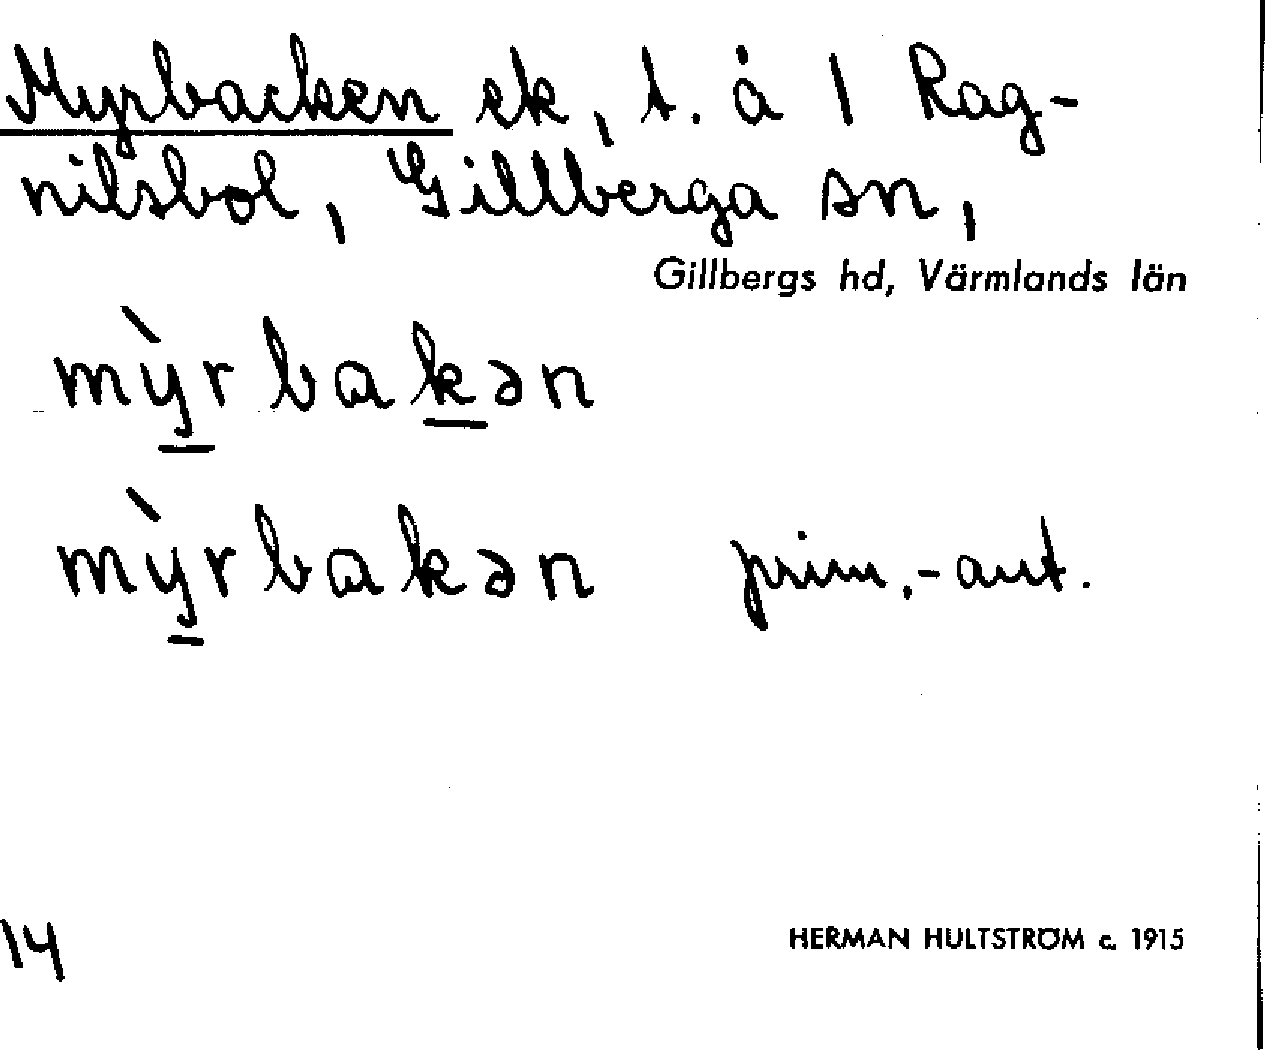 Myrbacken ek, t. å 1 Rag-
nilsbol, Gillberga sn,
Gillbergs hd, Värmlands län
mỳrbakən
mỳrbakən prim.-aut.
14
HERMAN HULTSTRÖM c. 1915